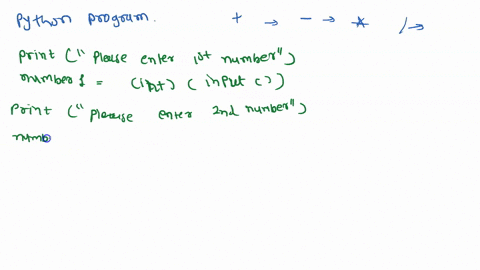 Python program. + → - → * / →
print ("Please enter 1st number")
number1 = (int) (input ())
print ("please enter 2nd number")
numb